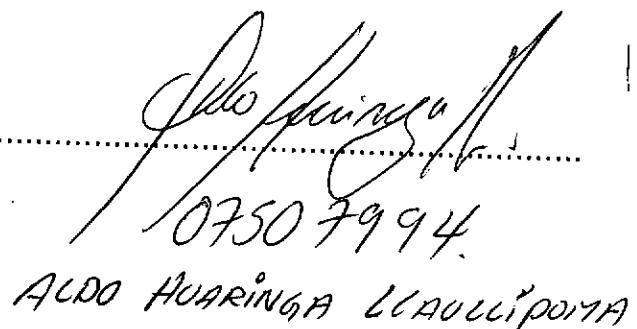 Aldo Huaringa Ll.
07507994.
ALDO HUARINGA LLAULLIPOMA